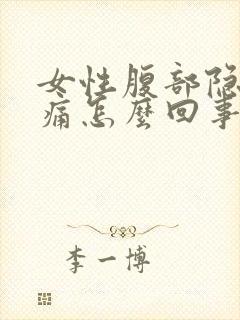 女性腹部隐
痛怎麽回事
李一博